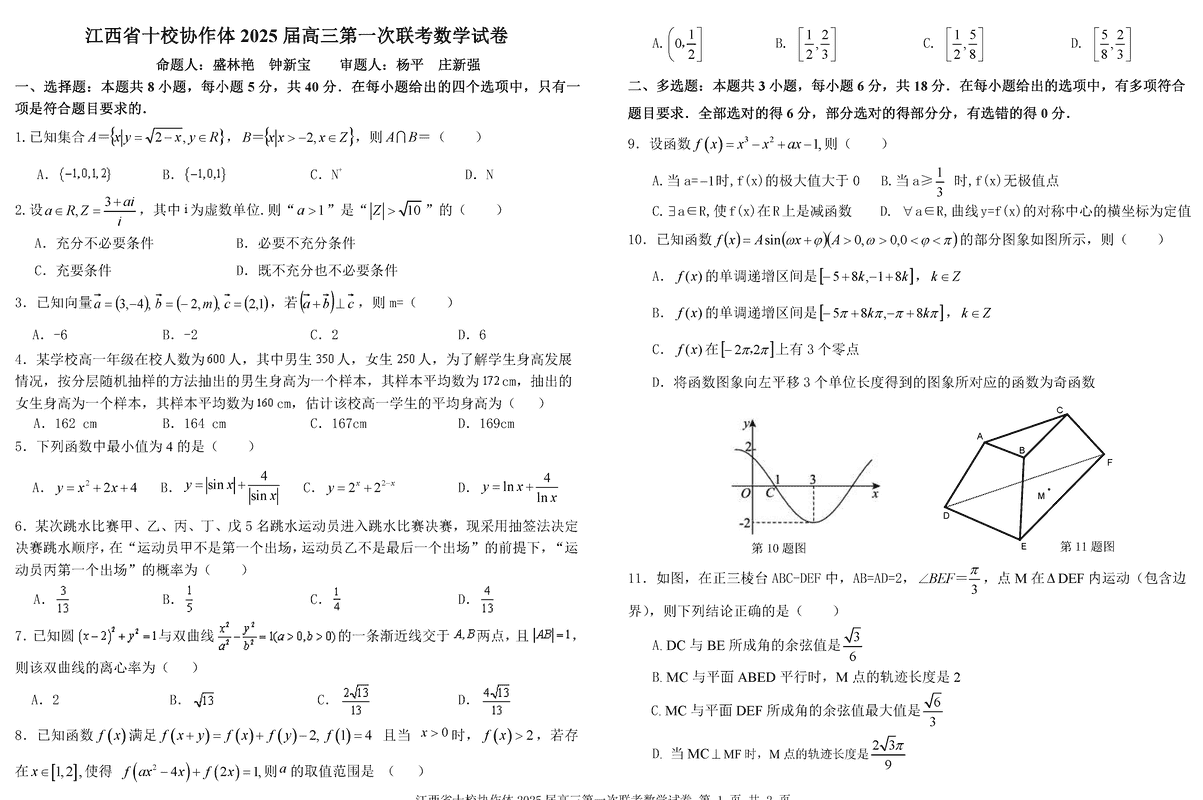 江西省十校协作体 2025 届高三第一次联考数学试卷
命题人：盛林艳　钟新宝　　审题人：杨平　庄新强
一、选择题：本题共 8 小题，每小题 5 分，共 40 分．在每小题给出的四个选项中，只有一
项是符合题目要求的．
1.已知集合 A={x|y=√(2−x),y∈R}，B={x|x>−2,x∈Z}，则 A∩B=（　　）
A．{−1,0,1,2}　　B．{−1,0,1}　　C．N*　　D．N
2.设a∈R,Z=(3+ai)/i，其中 i 为虚数单位.则“a>1”是“|Z|>√10”的（　　）
A．充分不必要条件　　B．必要不充分条件
C．充要条件　　D．既不充分也不必要条件
3．已知向量a=(3,−4),b=(−2,m),c=(2,1)，若(a+b)⊥c，则 m=（　　）
A．-6　　B．-2　　C．2　　D．6
4．某学校高一年级在校人数为600 人，其中男生 350 人，女生 250 人，为了解学生身高发展
情况，按分层随机抽样的方法抽出的男生身高为一个样本，其样本平均数为 172 cm，抽出的
女生身高为一个样本，其样本平均数为160 cm，估计该校高一学生的平均身高为（　　）
A．162 cm　　B．164 cm　　C．167cm　　D．169cm
5．下列函数中最小值为 4 的是（　　）
A．y=x²+2x+4　　B．y=|sin x|+4/|sin x|　　C．y=2^x+2^(2−x)　　D．y=ln x+4/ln x
6．某次跳水比赛甲、乙、丙、丁、戊 5 名跳水运动员进入跳水比赛决赛，现采用抽签法决定
决赛跳水顺序，在“运动员甲不是第一个出场，运动员乙不是最后一个出场”的前提下，“运
动员丙第一个出场”的概率为（　　）
A．3/13　　B．1/5　　C．1/4　　D．4/13
7．已知圆 (x−2)²+y²=1与双曲线 x²/a²−y²/b²=1(a>0,b>0)的一条渐近线交于 A,B 两点，且 |AB|=1，
则该双曲线的离心率为（　　）
A．2　　B．√13　　C．2√13/13　　D．4√13/13
8．已知函数 f(x) 满足 f(x+y)=f(x)+f(y)−2, f(1)=4 且当 x>0 时，f(x)>2，若存
在x∈[1,2],使得 f(ax²−4x)+f(2x)=1,则a 的取值范围是 （　　）
A.(0,1/2]　　B.[1/2,2/3]　　C.[1/2,5/8]　　D.[5/8,2/3]
二、多选题：本题共 3 小题，每小题 6 分，共 18 分．在每小题给出的选项中，有多项符合
题目要求．全部选对的得 6 分，部分选对的得部分分，有选错的得 0 分．
9．设函数 f(x)=x³−x²+ax−1,则（　　）
A.当 a=−1时,f(x)的极大值大于 0　　B.当 a≥1/3 时,f(x)无极值点
C.∃a∈R,使 f(x)在R上是减函数　　D. ∀a∈R,曲线y=f(x)的对称中心的横坐标为定值
10．已知函数 f(x)=Asin(ωx+φ)(A>0,ω>0,0<φ<π)的部分图象如图所示，则（　　）
A．f(x)的单调递增区间是[−5+8k,−1+8k]，k∈Z
B．f(x)的单调递增区间是[−5π+8kπ,−π+8kπ]，k∈Z
C．f(x)在[−2π,2π]上有 3 个零点
D．将函数图象向左平移 3 个单位长度得到的图象所对应的函数为奇函数
y 2 O C 1 3 x -2
第 10 题图
A B C D E F M
第 11 题图
11．如图，在正三棱台 ABC-DEF 中，AB=AD=2，∠BEF=π/3，点 M 在ΔDEF 内运动（包含边
界），则下列结论正确的是（　　）
A. DC 与 BE 所成角的余弦值是√3/6
B. MC 与平面 ABED 平行时，M 点的轨迹长度是 2
C. MC 与平面 DEF 所成角的余弦值最大值是√6/3
D. 当 MC⊥MF 时，M 点的轨迹长度是2√3π/9
江西省十校协作体 2025 届高三第一次联考数学试卷 第 1 页 共 2 页